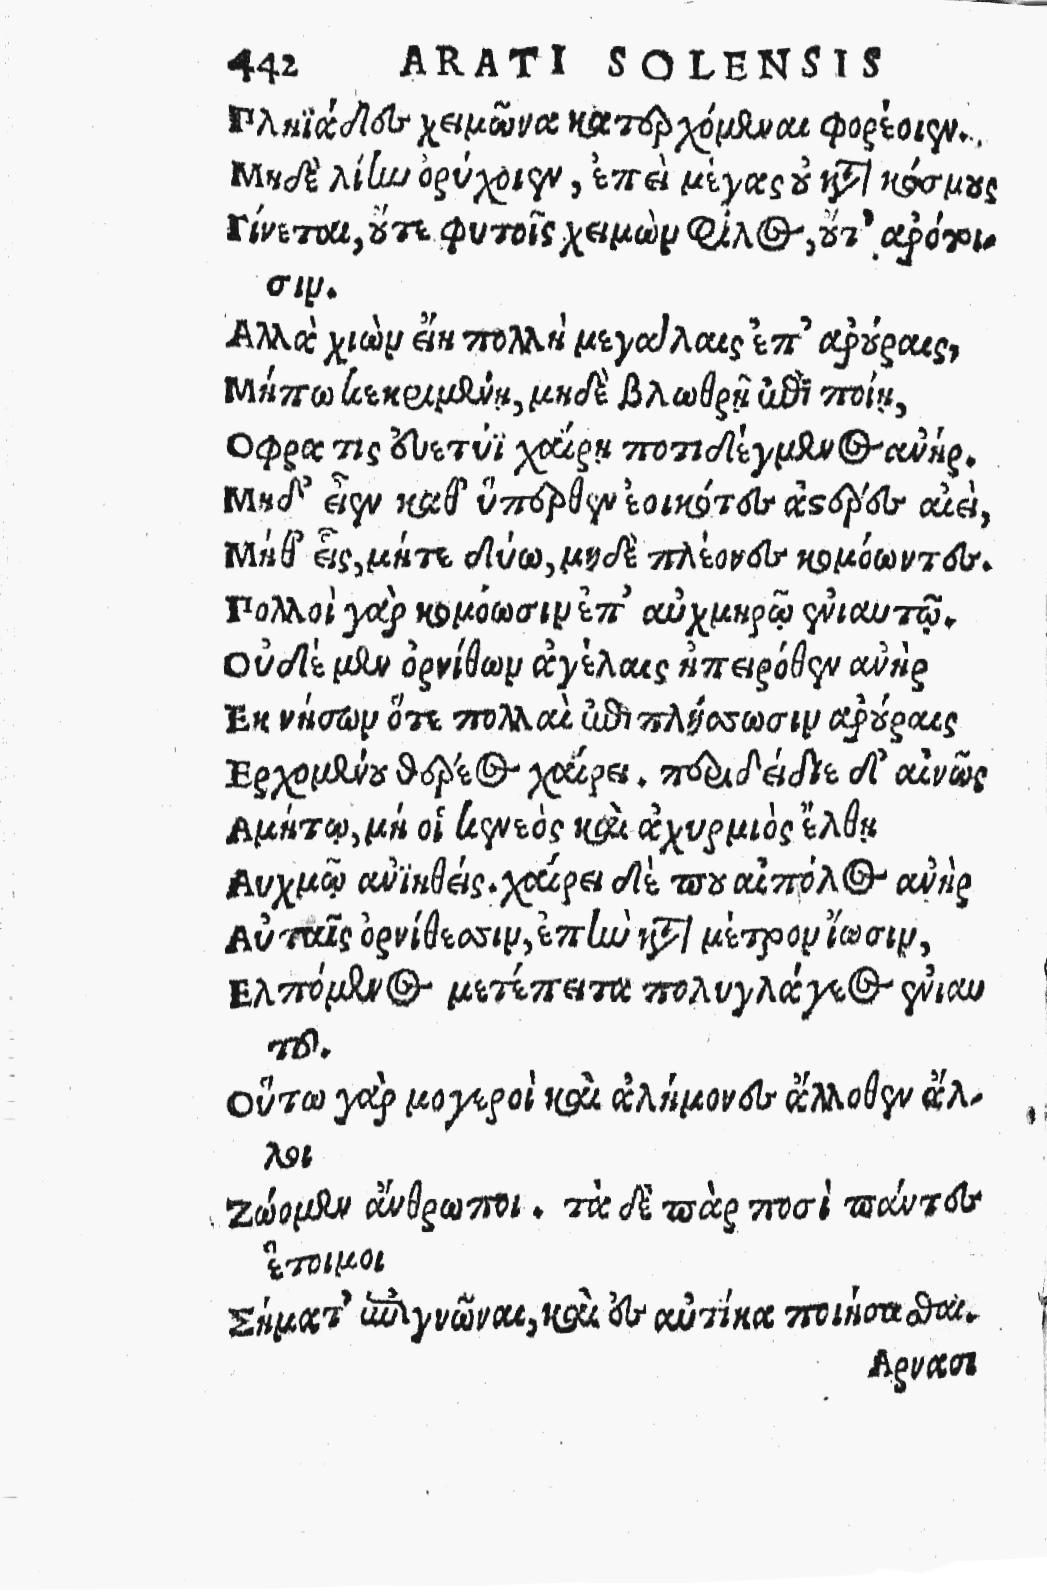 442 ARATI SOLENSIS
Πληϊάδες χειμῶνα κατερχόμεναι φορέοιεν.
Μηδὲ λίην ὀρύχοιεν, ἐπεὶ μέγας οὐ κατὰ κόσμους
Γίνεται, οὔτε φυτοῖς χειμὼν φίλος, οὔτ' ἀρότοι-
σιν.
Αλλὰ χιὼν εἴη πολλὴ μεγάλαις ἐπ' ἀρούραις,
Μήπω κεκριμένῃ, μηδὲ βλωθρῇ ἐπὶ ποίῃ,
Οφρα τις εὐετύϊ χαίρῃ ποτιδέγμενος ἀνήρ.
Μηδ' εἶεν καθ' ὕπερθεν ἐοικότες ἀστέρες αἰεὶ,
Μήθ' εἷς, μήτε δύω, μηδὲ πλέονες κομόωντες.
Πολλοὶ γὰρ κομόωσιν ἐπ' αὐχμηρῷ ἐνιαυτῷ.
Οὐδὲ μὲν ὀρνίθων ἀγέλαις ἠπειρόθεν ἀνὴρ
Εκ νήσων ὅτε πολλαὶ ἐπιπλήσσωσιν ἀρούραις
Ερχομένου θέρεος χαίρει. περιδείδιε δ' αἰνῶς
Αμήτῳ, μή οἱ κενεὸς καὶ ἀχυρμιὸς ἔλθῃ
Αυχμῷ ἀνϊηθείς. χαίρει δέ που αἰπόλος ἀνὴρ
Αὐταῖς ὀρνίθεσσιν, ἐπὴν κατὰ μέτρον ἴωσιν,
Ελπόμενος μετέπειτα πολυγλάγεος ἐνιαυ
τοῦ.
Οὕτω γὰρ μογεροὶ καὶ ἀλήμονες ἄλλοθεν ἄλ-
λοι
Ζώομεν ἄνθρωποι. τὰ δὲ πὰρ ποσὶ πάντες
ἕτοιμοι
Σήματ' ἐπιγνῶναι, καὶ ἐς αὐτίκα ποιήσασθαι.
Αρνασι